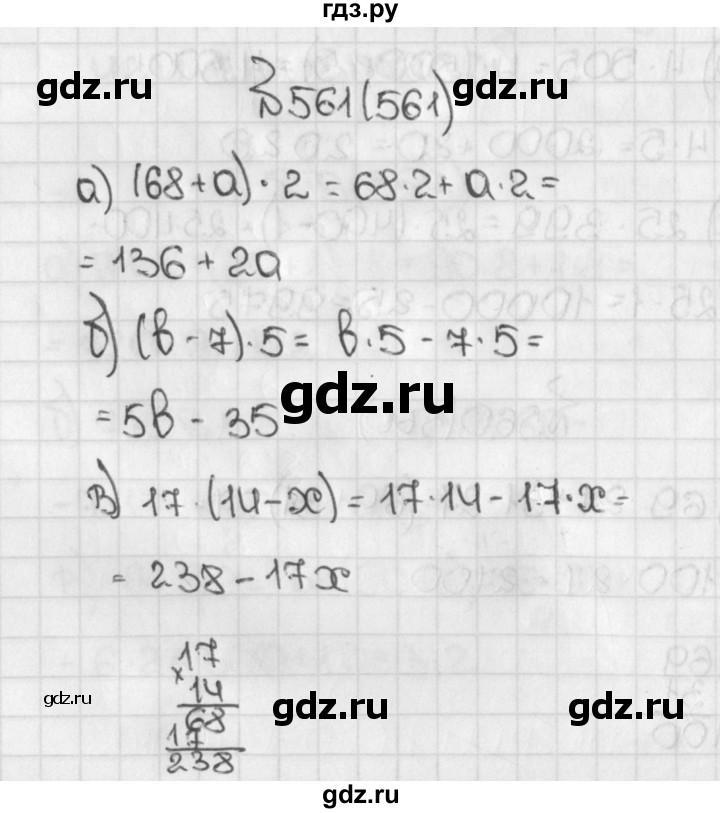 гдз.ру
gdz.ru
№561(561)
gdz.ru
а) (68+а)·2=68·2+а·2=
=136+2а
б) (в-7)·5= в·5-7·5=
gdz.ru
=5в-35
в) 17·(14-х)=17·14-17·х=
=238-17х
17
×14
68
17
238
gdz.ru
gdz.ru
gdz.ru
gdz.ru